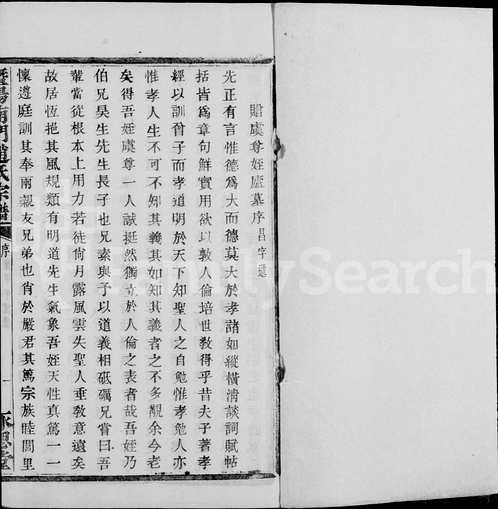 贈虞尊姪廬墓序 昌字
先正有言惟德為大而德莫大於孝諸如縱橫淸談詞賦帖
括皆為章句鮮實用欲以敦人倫培世敎得乎昔夫子著孝
經以訓曾子而孝道明於天下知聖人之自勉惟孝勉人亦
惟孝人生不可不知其義其如知其義者之不多覯余今老
矣得吾姪虞尊一人誠挺然獨立於人倫之表者哉吾姪乃
伯兄吳生先生長子也兄素與予以道義相砥礪兄嘗曰吾
輩當從根本上用力若徒尙月露風雲失聖人垂敎意遠矣
故居恆挹其風規類有明道先生氣象吾姪天性眞篤一一
懷遵庭訓其奉兩親友兄弟也肯於嚴君其篤宗族睦閭里
暨陽南門趙氏宗譜
序
一
永思堂
MySearch